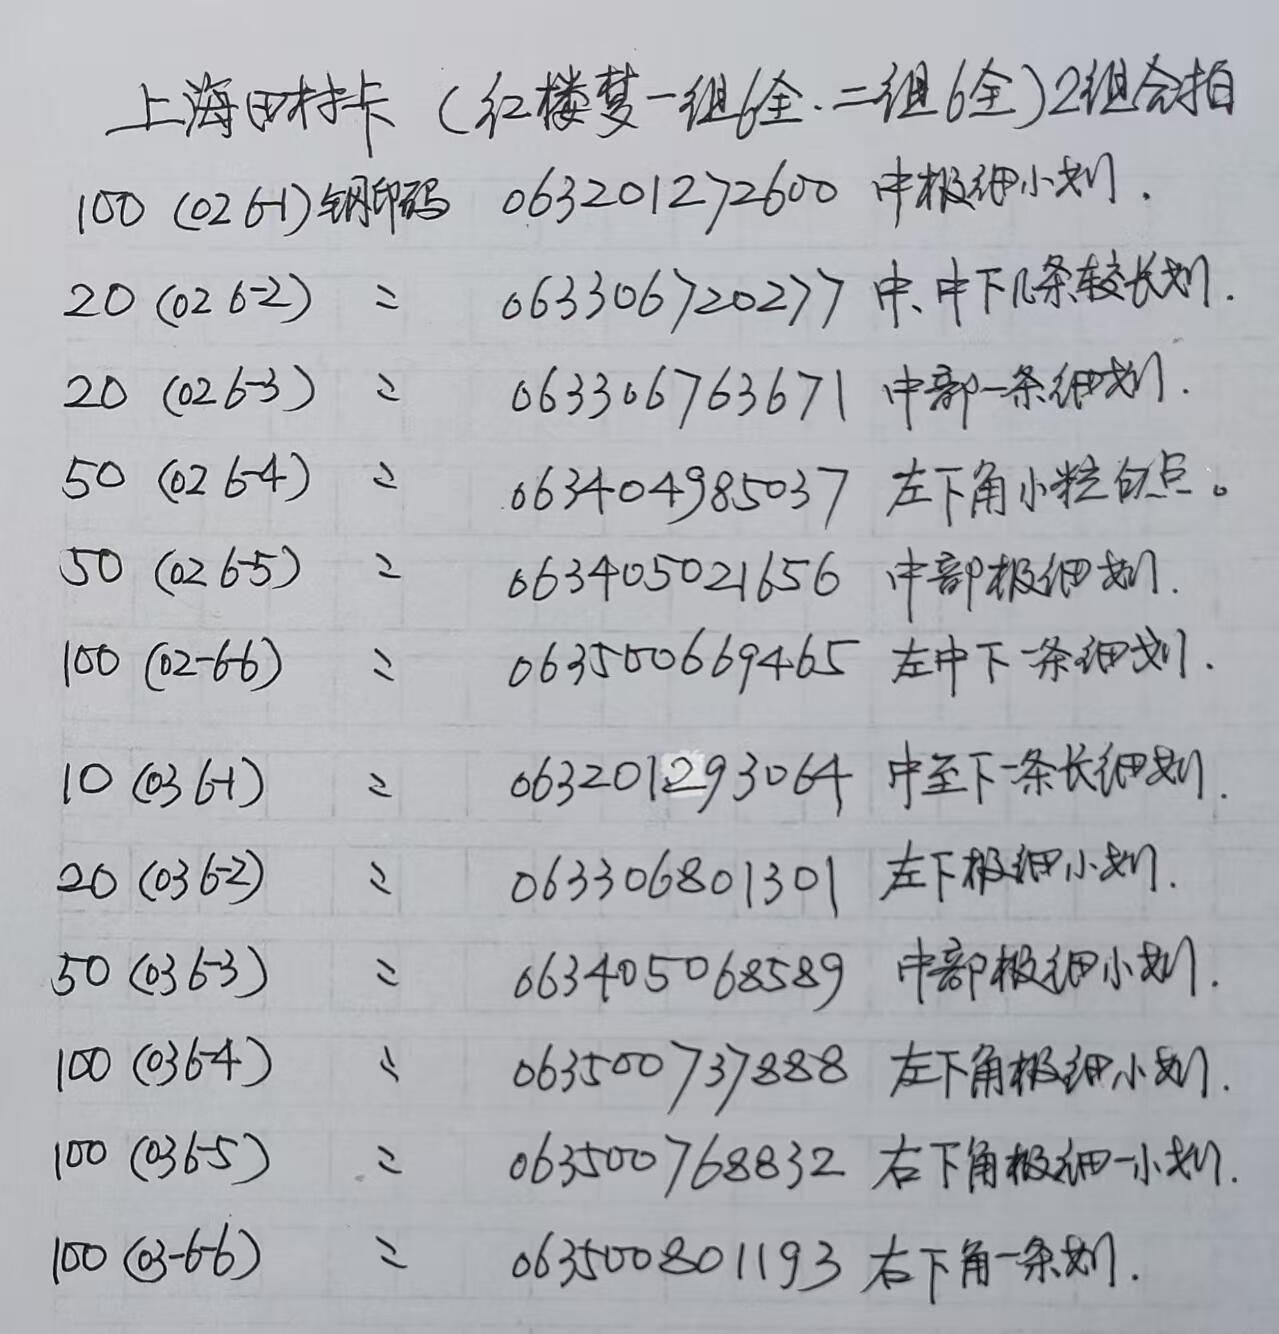 上海田村卡（红楼梦一组6全.二组6全)2组合拍
100 (02 6-1)钢印码 063201272600 中极细小划.
20 (02 6-2) 〃 063306720277 中、中下几条较长划.
20 (02 6-3) 〃 063306763671 中部一条细划.
50 (02 6-4) 〃 063404985037 左下角小粒白点。
50 (02 6-5) 〃 063405021656 中部极细划.
100 (02-6-6) 〃 063500669465 左中下一条细划.
10 (03 6-1) 〃 063201293064 中至下一条长细划.
20 (03 6-2) 〃 063306801301 左下极细小划.
50 (03 6-3) 〃 063405068589 中部极细小划.
100 (03 6-4) 〃 063500737888 左下角极细小划.
100 (03 6-5) 〃 063500768832 右下角极细一小划.
100 (03-6-6) 〃 063500801193 右下角一条划.